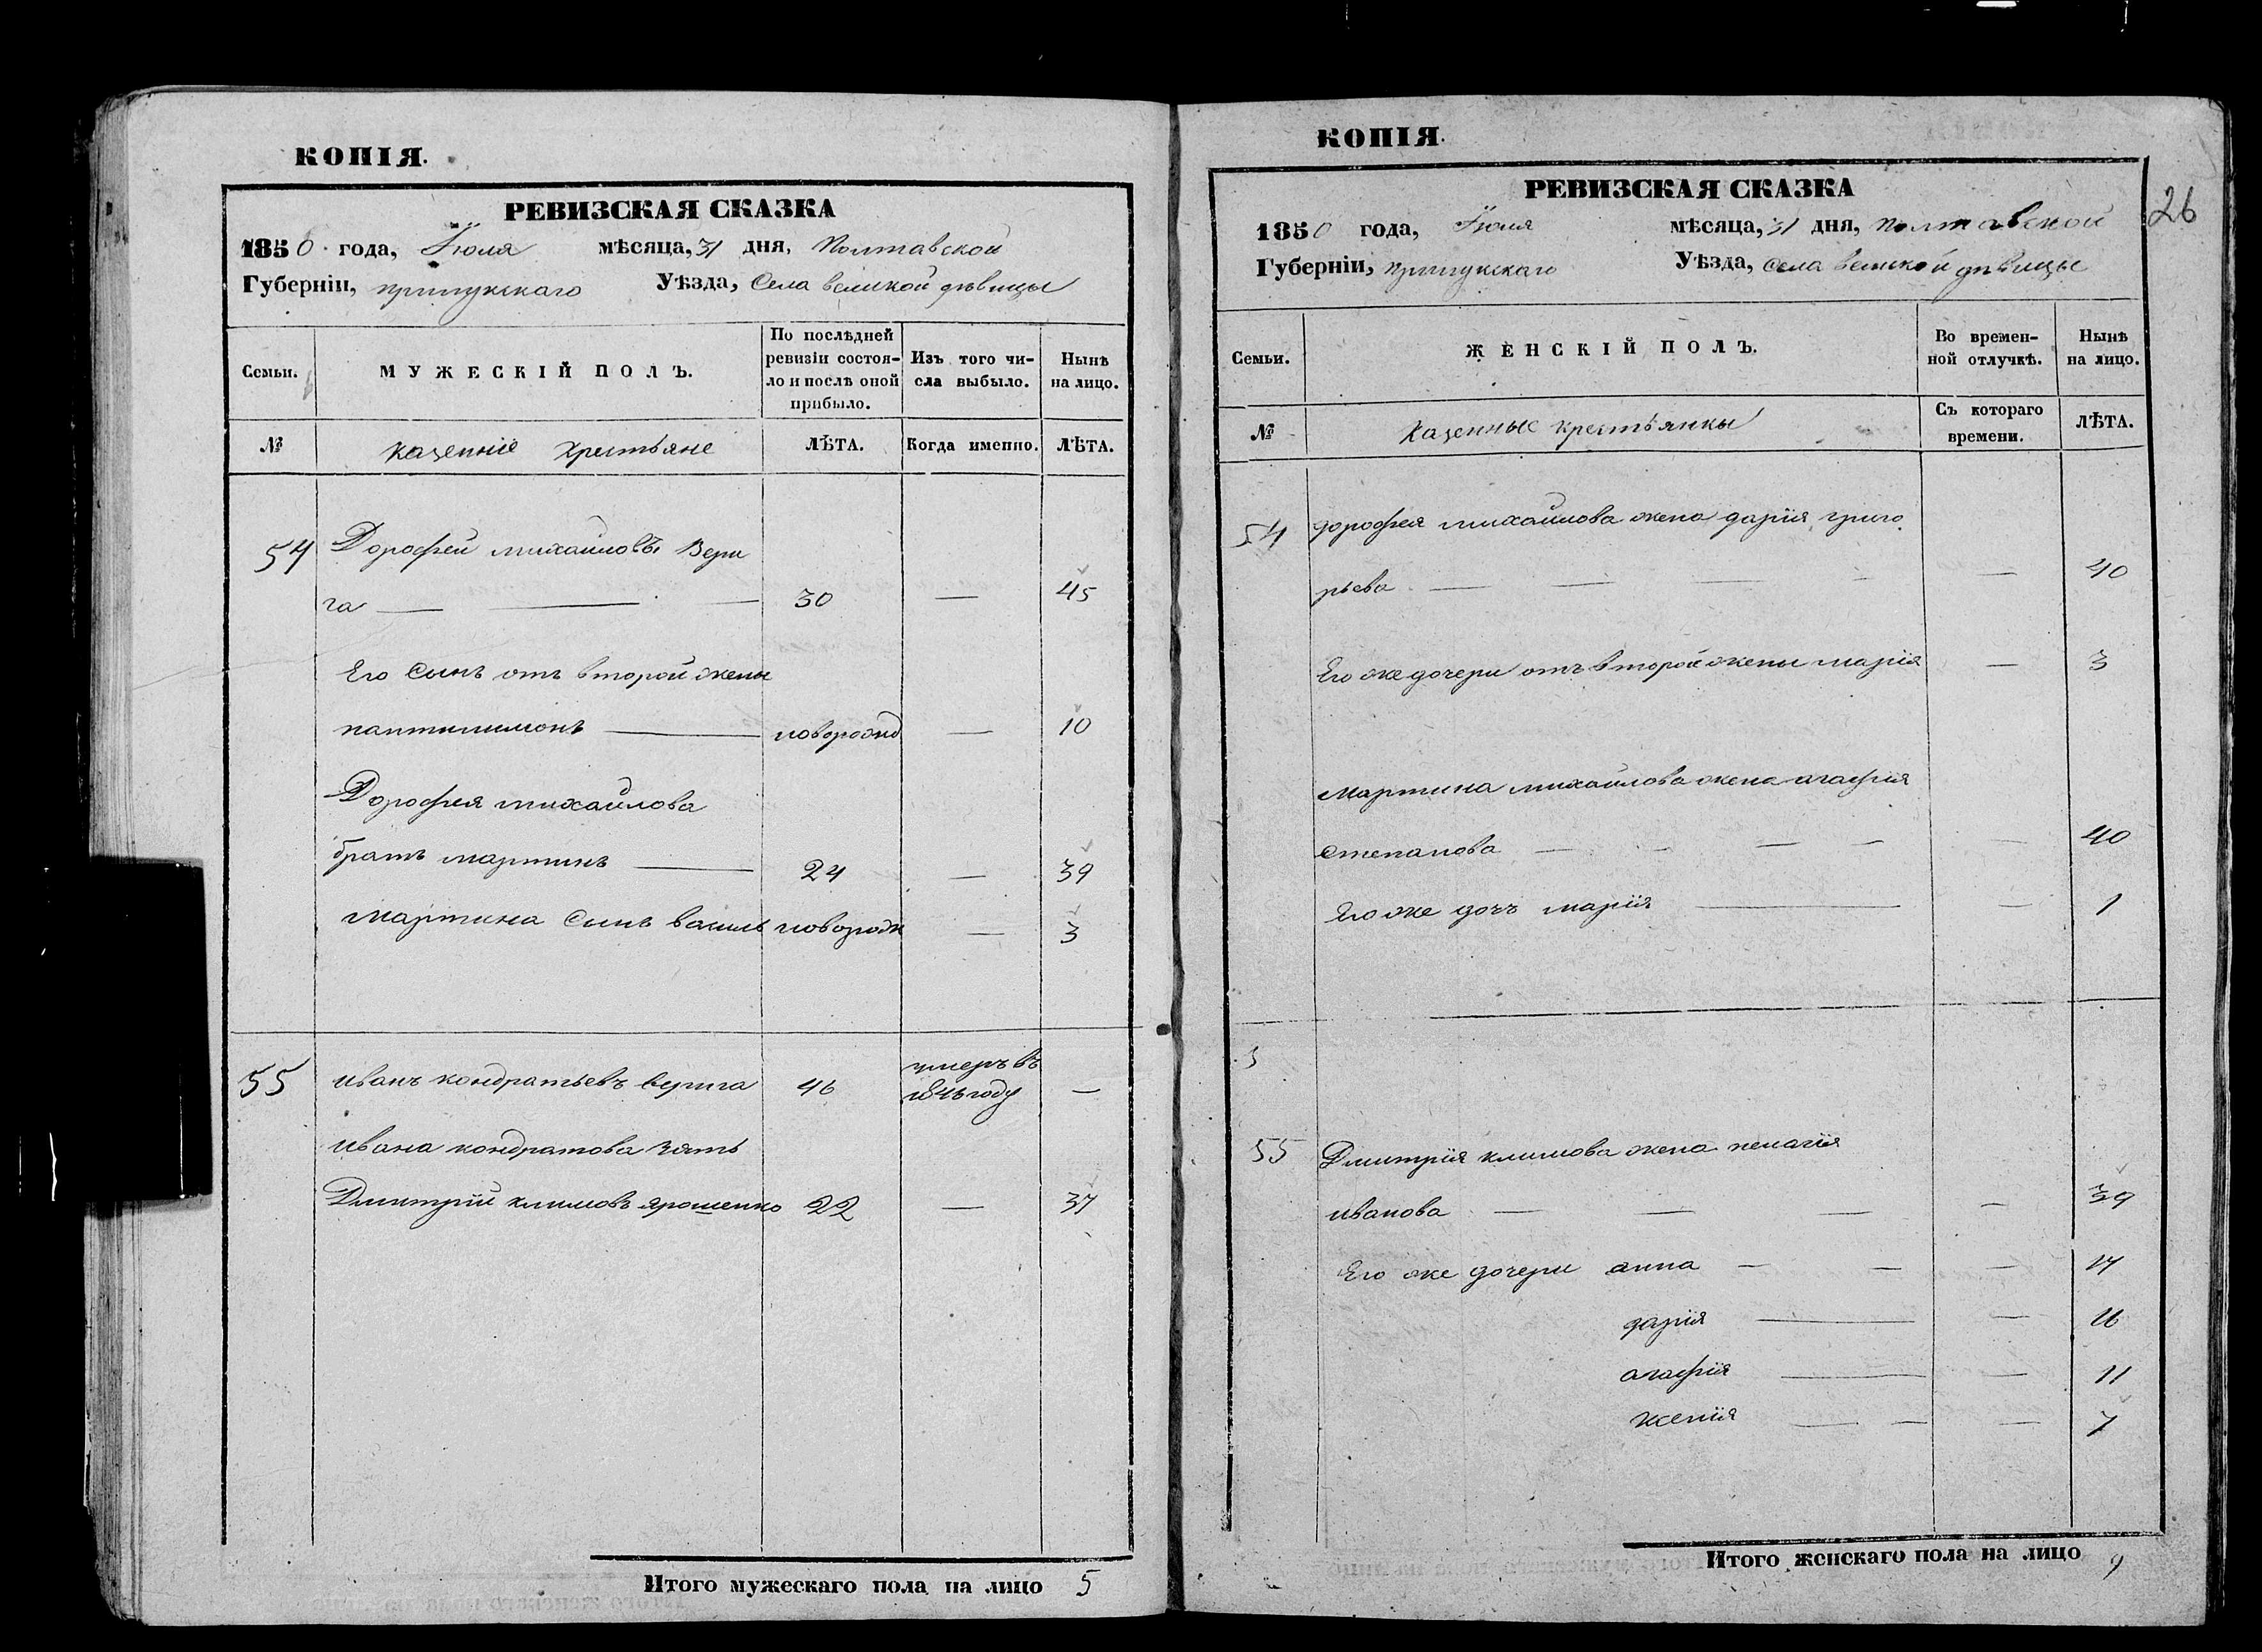 КОПІЯ.
РЕВИЗСКАЯ СКАЗКА
1850 года, Іюля мѣсяца, 31 дня, Полтавской
Губерніи, прилукскаго Уѣзда, Села великой дѣвицы
Семьи.
МУЖЕСКІЙ ПОЛЪ.
По послѣдней
ревизіи состоя-
ло и послѣ оной
прибыло.
Изъ того чи-
сла выбыло.
Нынѣ
на лицо.
№
казенніе хрестьяне
ЛѢТА.
Когда именно.
ЛѢТА.
54 Дорофей михайловъ Вери
га — — — 30 — 45
Его Сынъ отъ второй жены
пантилимонъ — новорожд — 10
Дорофея михайлова
братъ мартинъ — 24 — 39
Мартина Сынъ василь новорожд — 3
55 иванъ кондратьевъ верига 46 умеръ въ
1846 году —
ивана кондратова зять
Дмитрій климовъ ярошенко 22 — 37
Итого мужескаго пола на лицо 5
КОПІЯ.
РЕВИЗСКАЯ СКАЗКА
26
1850 года, Іюля мѣсяца, 31 дня, Полтавской
Губерніи, прилукскаго Уѣзда, Села великой дѣвицы
Семьи.
ЖЕНСКІЙ ПОЛЪ.
Во времен-
ной отлучкѣ.
Нынѣ
на лицо.
№
Казенные крестьянкы
Съ котораго
времени.
ЛѢТА.
54 дорофея михайлова жена дарія григо
рьева — — — — — 40
Его же дочери отъ второй жены марія — 3
Мартина михайлова жена агафія
степанова — — — — — 40
Его же дочъ марія — — 1
55 Дмитрія климова жена пелагія
иванова — — — — 39
Его же дочери анна — — — 17
дарія — — 16
агафія — — 11
ксенія — — — 7
Итого женскаго пола на лицо 9